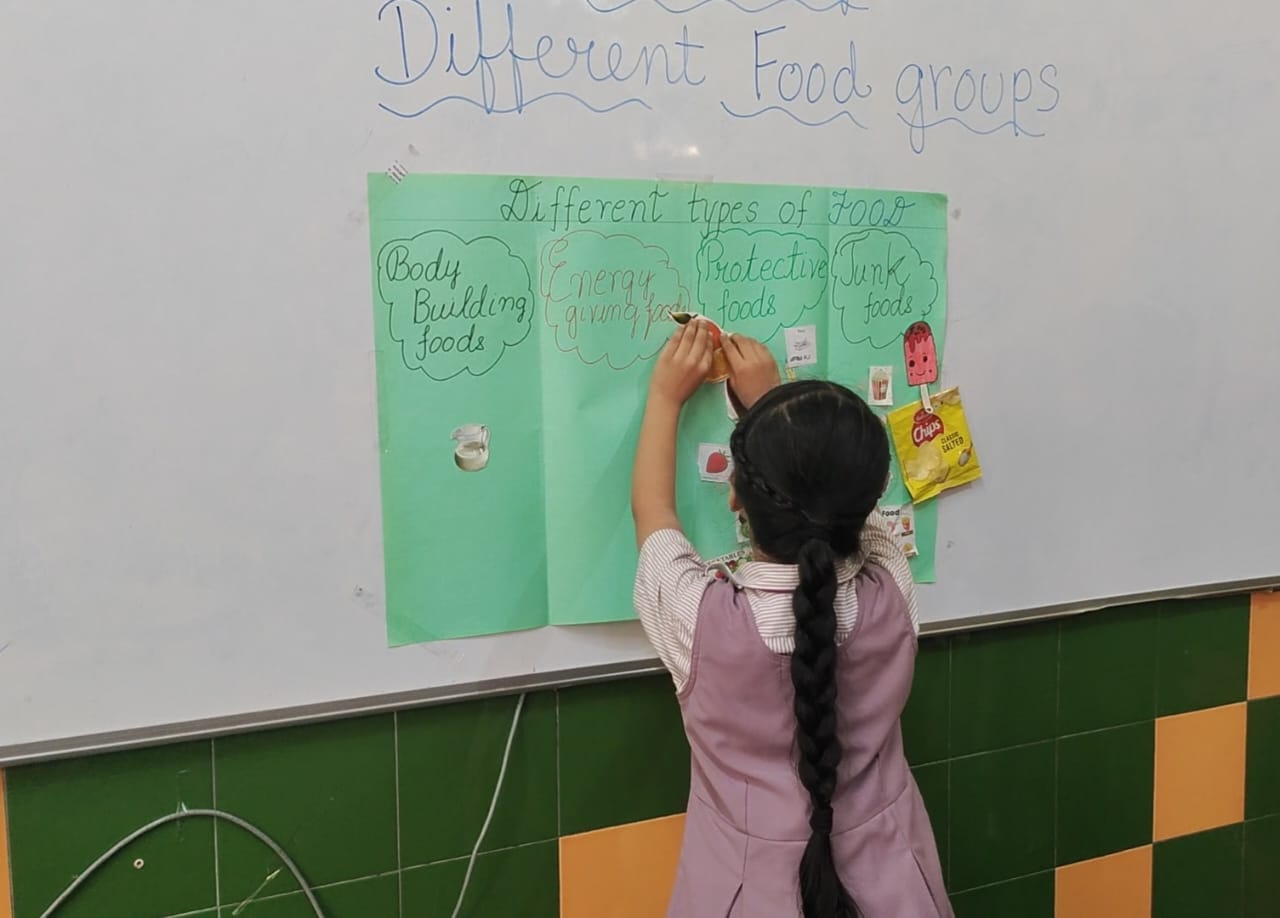 Different Food groups
Different types of FOOD
Body
Building
foods
Energy
giving foods
Protective
foods
Junk
foods
Chips
CLASSIC
SALTED
Food